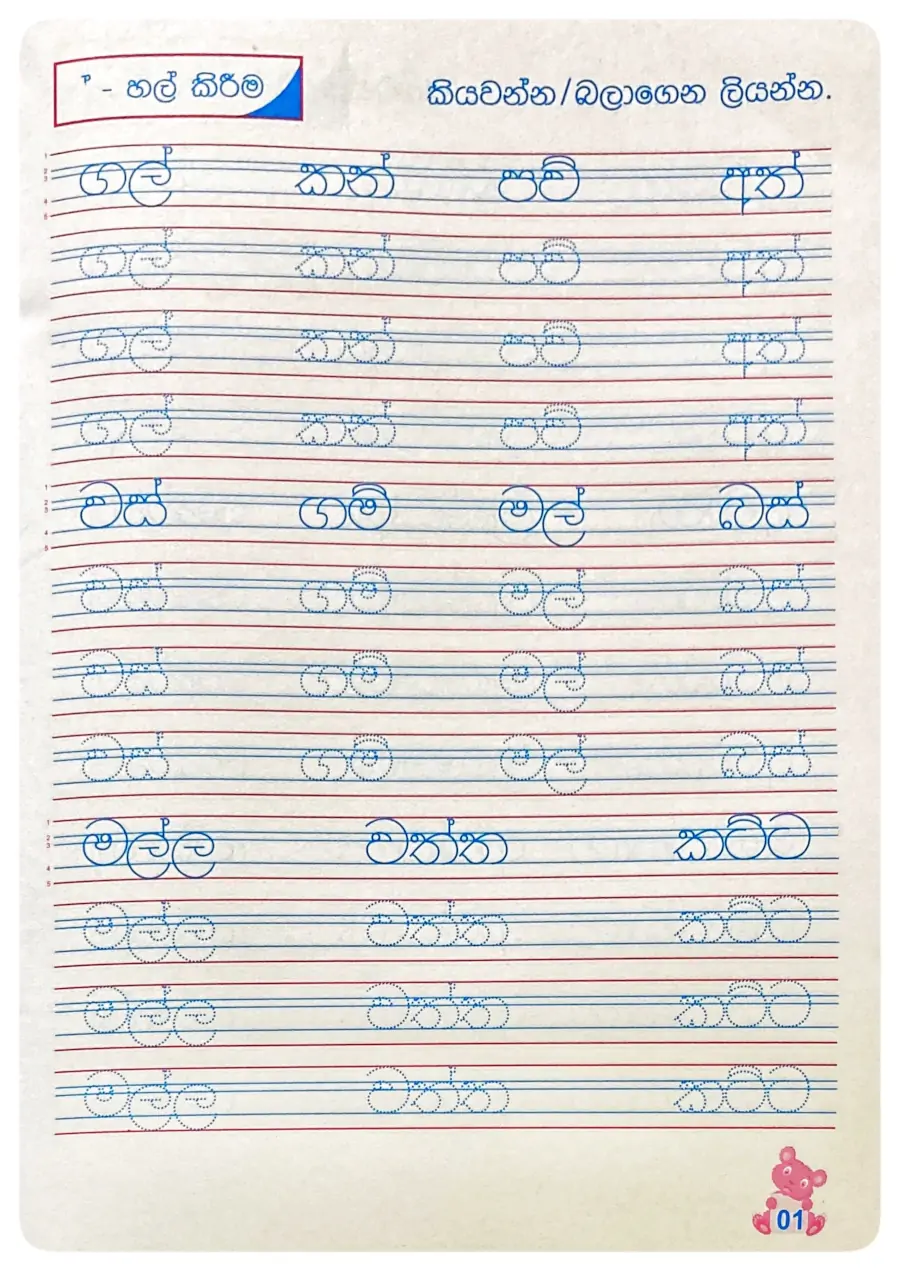 ් - හල් කිරීම
කියවන්න/බලාගෙන ලියන්න.
ගල් කන් පව් අත්
ගල් කන් පව් අත්
ගල් කන් පව් අත්
ගල් කන් පව් අත්
වස් ගම් මල් බස්
වස් ගම් මල් බස්
වස් ගම් මල් බස්
වස් ගම් මල් බස්
මල්ල වත්ත කට්ට
මල්ල වත්ත කට්ට
මල්ල වත්ත කට්ට
මල්ල වත්ත කට්ට
01